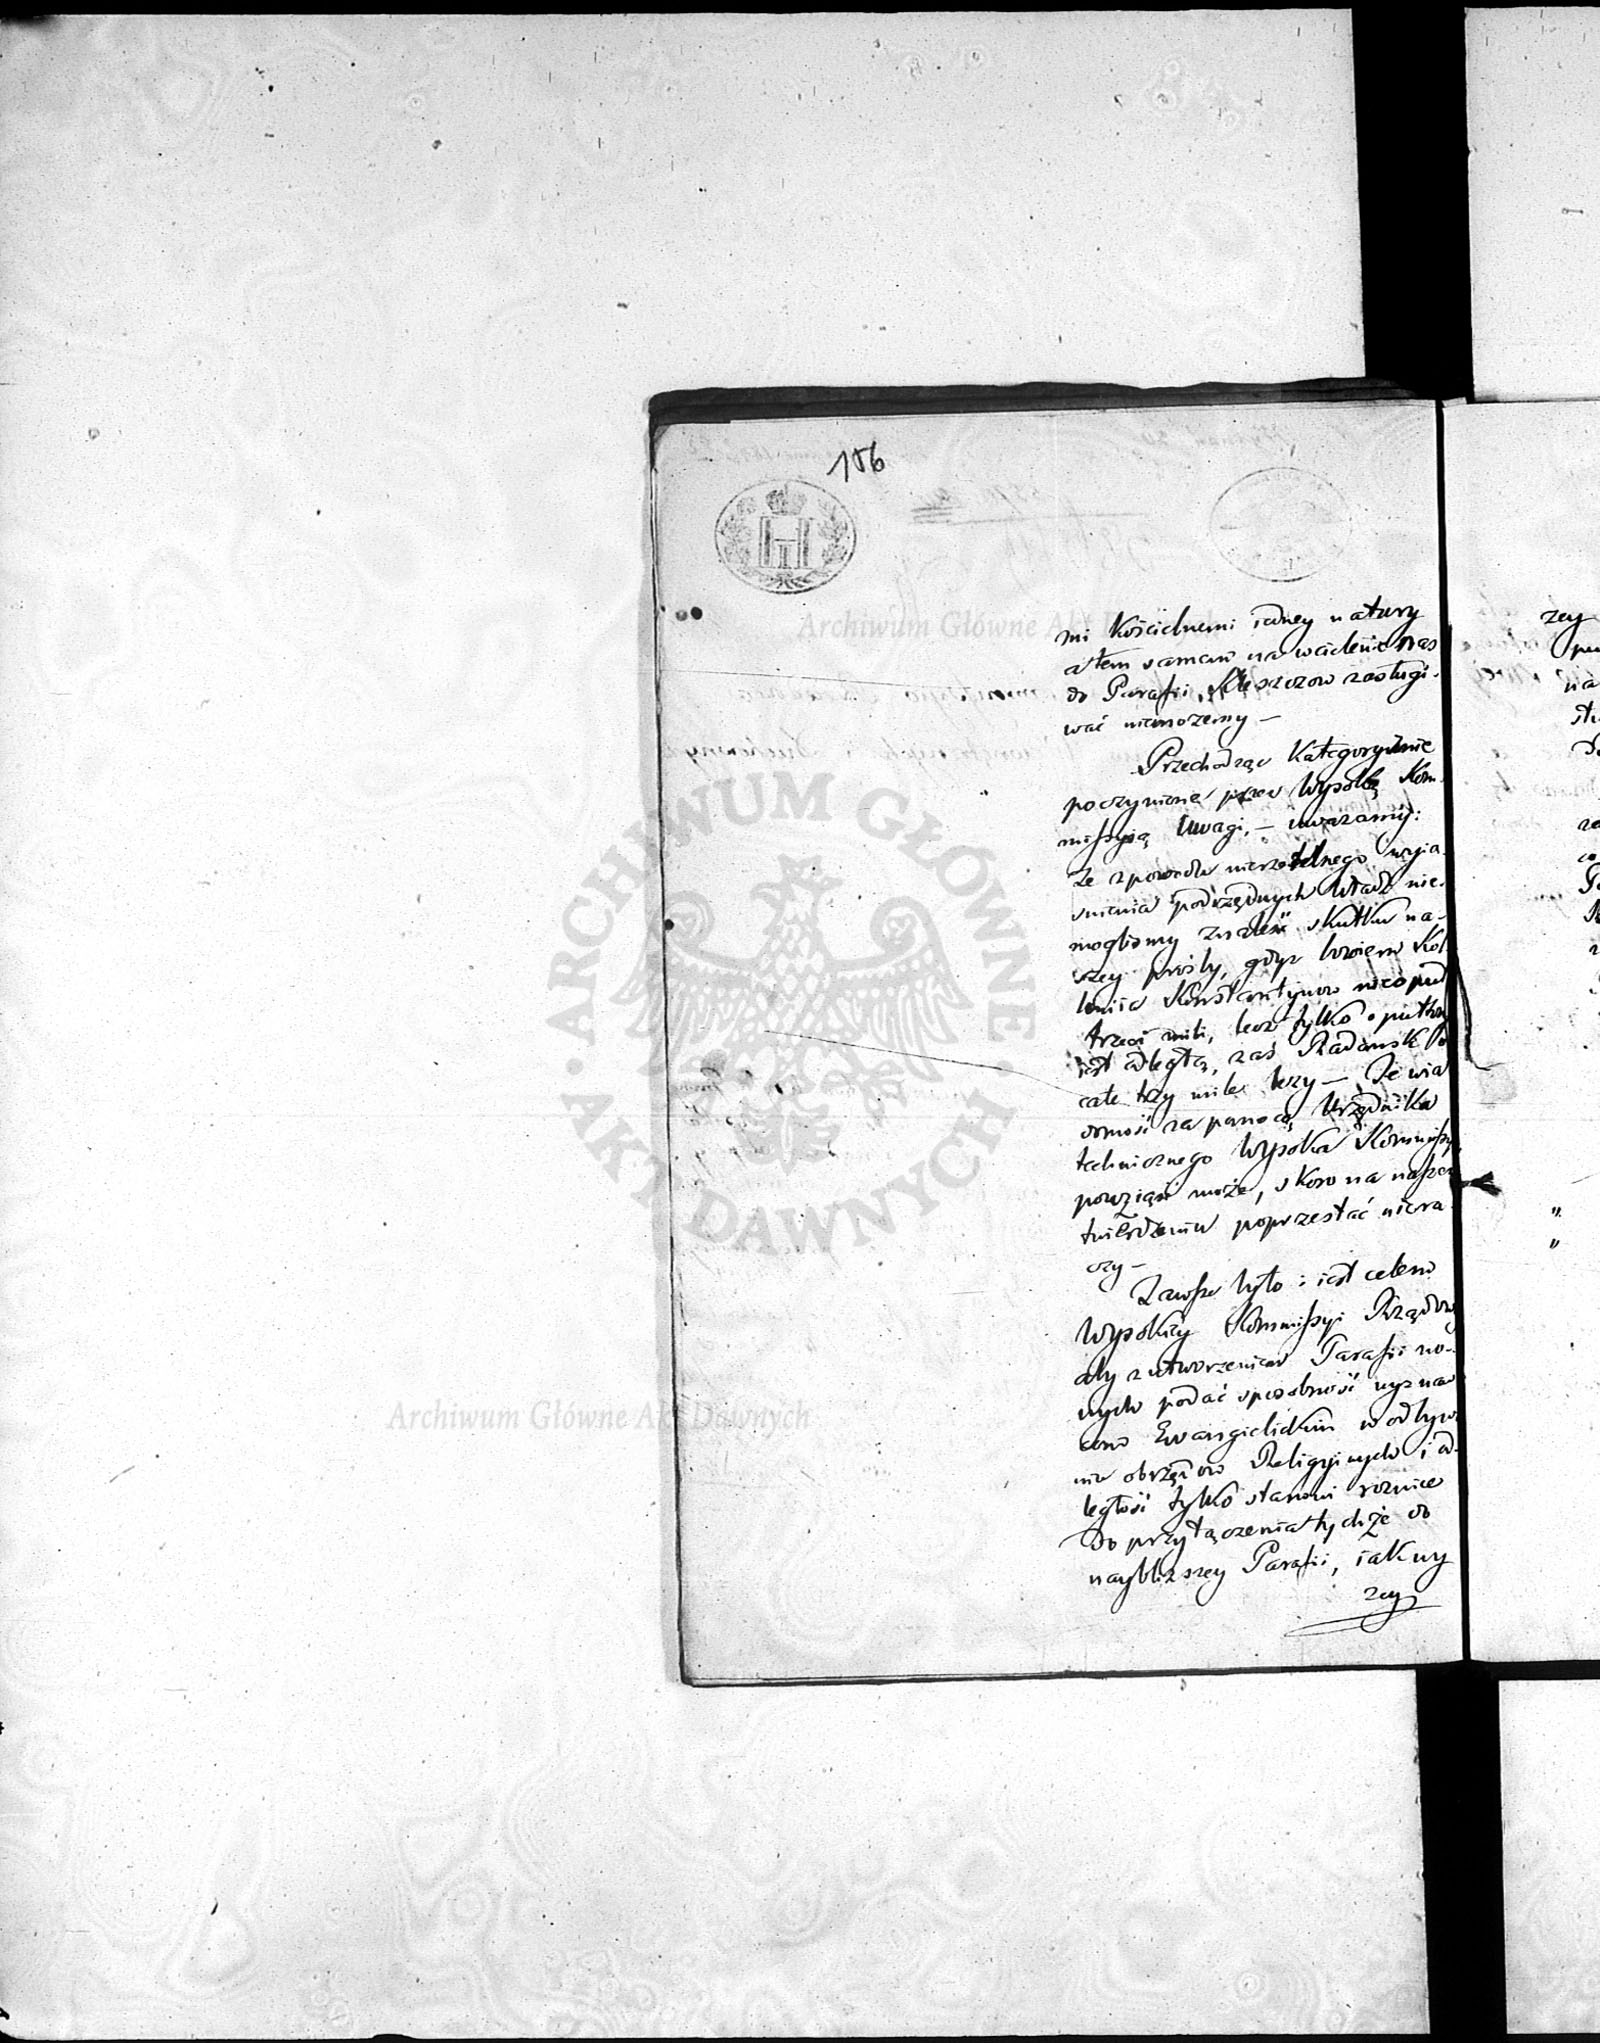 186
H
I
mi kościelnemi iedney natury
a tem samem na wcielenie nas
do Parafii Kleszczow zasługi-
wać niemożemy —
Przechodząc kategorycznie
poczynione przez Wysoką Kom-
missyią Uwagi, — uważamy:
że z powodu nierzetelnego wyia-
snienia podrzędnych Władz nie-
mogliśmy znaleść skutku na-
szey prośby, gdyz bowiem Kol-
lonia Konstantynow nie o puł
trzeci mili, lecz tylko o pułtory
iest odległą, zaś Radomsk o
całe trzy mile leży — Tę wia
domość za pomocą Urzędnika
technicznego Wysoka Kommissya
powziąść może, skoro na naszem
twierdzeniu poprzestać nie ra-
czy —
Zawsze było i iest celem
Wysokiéy Kommissyi Rządowey
aby z utworzeniem Parafii no-
wych podać sposobność wyzna
com Ewangielickim w odbywa
niu obrzędow Religyinych i od-
ległość tylko stanowi roznice
Do przyłączenia tychże do
naybliższey Parafii, iak wy
zey
zey
na
"
"
ARCHIWUM GŁÓWNE
AKT DAWNYCH
Archiwum Główne Akt Dawnych
Archiwum Główne Akt Dawnych